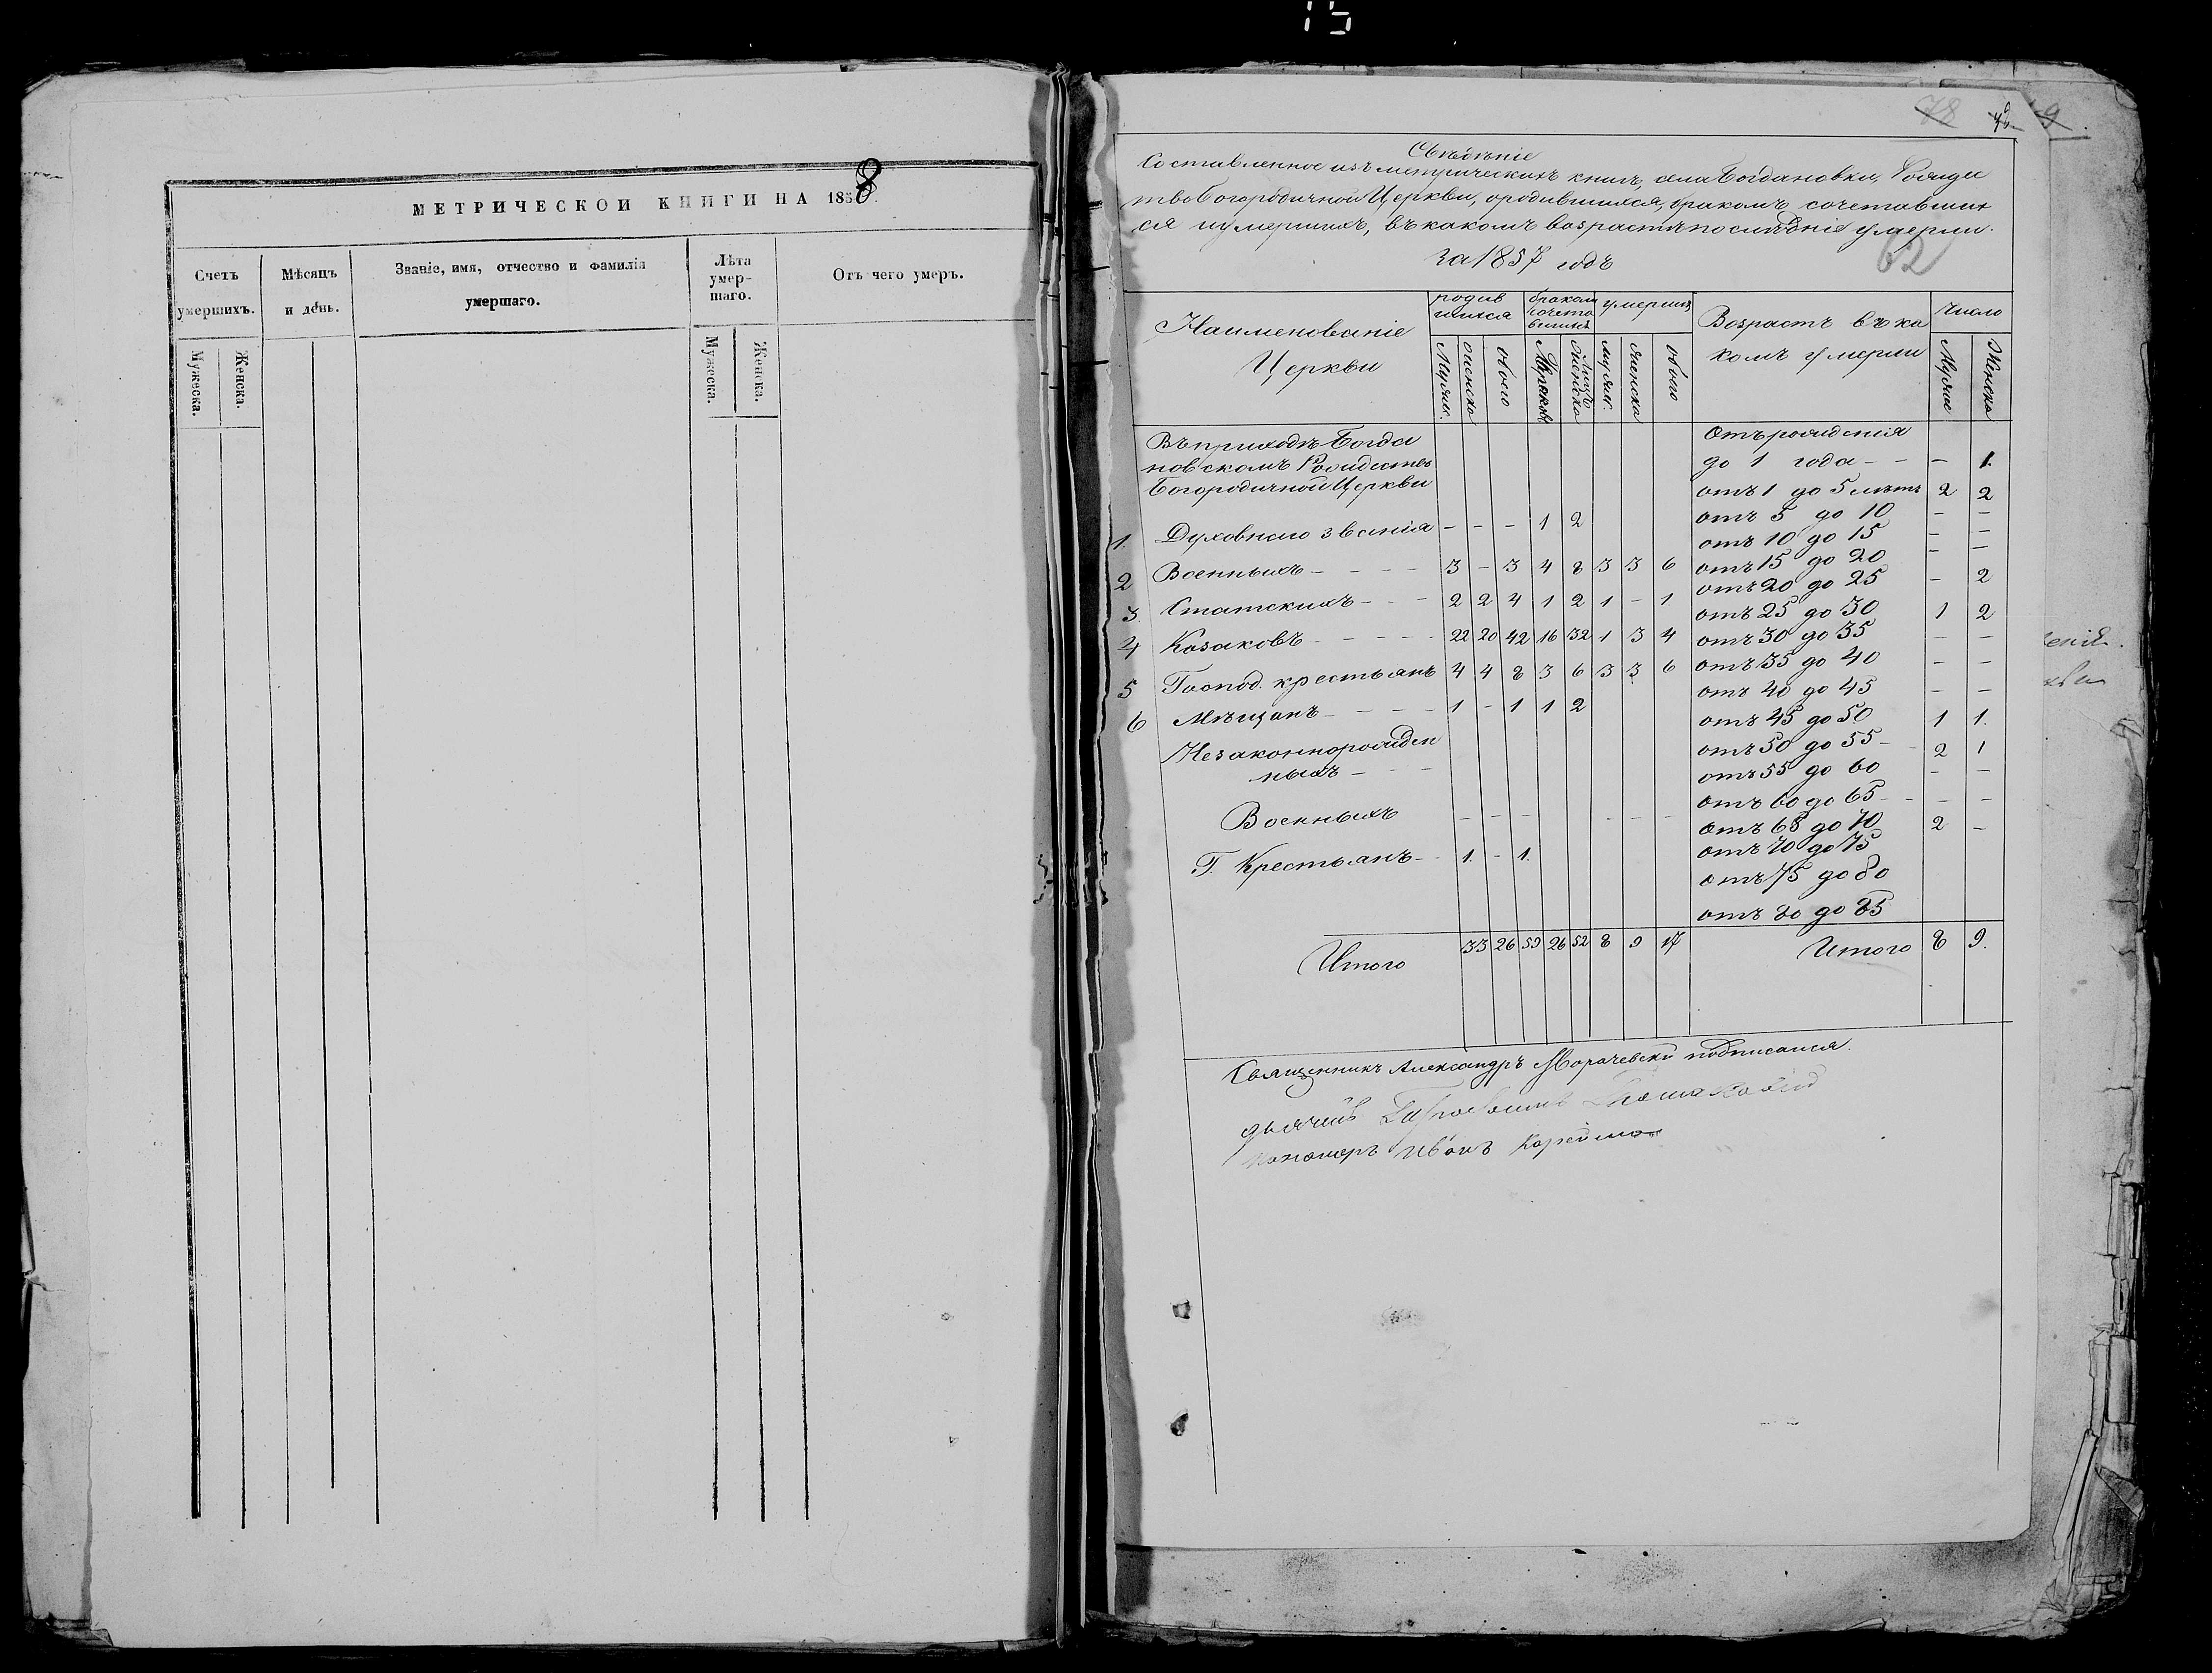 15
МЕТРИЧЕСКОЙ КНИГИ НА 1858
Счетъ умершихъ. Мѣсяцъ и день. Званіе, имя, отчество и фамилія умершаго. Лѣта умер-шаго. Отъ чего умеръ.
Мужеска. Женска. Мужеска. Женска.
78 9
Свѣдѣніе
Составленное изъ метрическихъ книгъ, села Богдановки, Рожде
ство Богородичной Церкви, о родившихся, бракомъ сочетавших
ся и умершихъ, въ какомъ возрастѣ послѣдніе умерли.
за 1857 годъ
62
Наименованіе Церкви родив шихся браком сочета вшихся умерших Возрастъ въ ка комъ умерли Число
Мужеск. Женска обоего Женска мужеск. Женска обоего Мужес Женска
Въ приходѣ Богда
новскомъ Рождество
Богородичной Церкви
1. Духовнаго званія - - - 1 2
2 Военныхъ - - - - 3 - 3 4 8 3 3 6
3. Статскихъ - - - 2 2 4 1 2 1 - 1.
4 Козаковъ - - - - - 22 20 42 16 32 1 3 4
5 Господ. крестьянъ 4 4 8 3 6 3 3 6
6 Мѣщанъ - - - - 1 - 1 1 2
Незаконнорожден
ныхъ - - -
Военныхъ - - - - - -
Г. Крестьянъ - - 1. - 1.
Итого 33 26 59 26 52 8 9 17
Отъ рожденія
до 1 года - - - 1.
отъ 1 до 5 лѣтъ 2 2
отъ 5 до 10 - -
отъ 10 до 15 - -
отъ 15 до 20 - -
отъ 20 до 25 - 2
отъ 25 до 30 1 2
отъ 30 до 35 - -
отъ 35 до 40 - -
отъ 40 до 45 - -
отъ 45 до 50 1 1.
отъ 50 до 55 - 2 1
отъ 55 до 60 - -
отъ 60 до 65 - - - -
отъ 65 до 70 2 -
отъ 70 до 75
отъ 75 до 80
отъ 80 до 85
Итого 8 9.
Священникъ Александръ Морачевскій подписался.
дьячекъ
Пономарь Иванъ